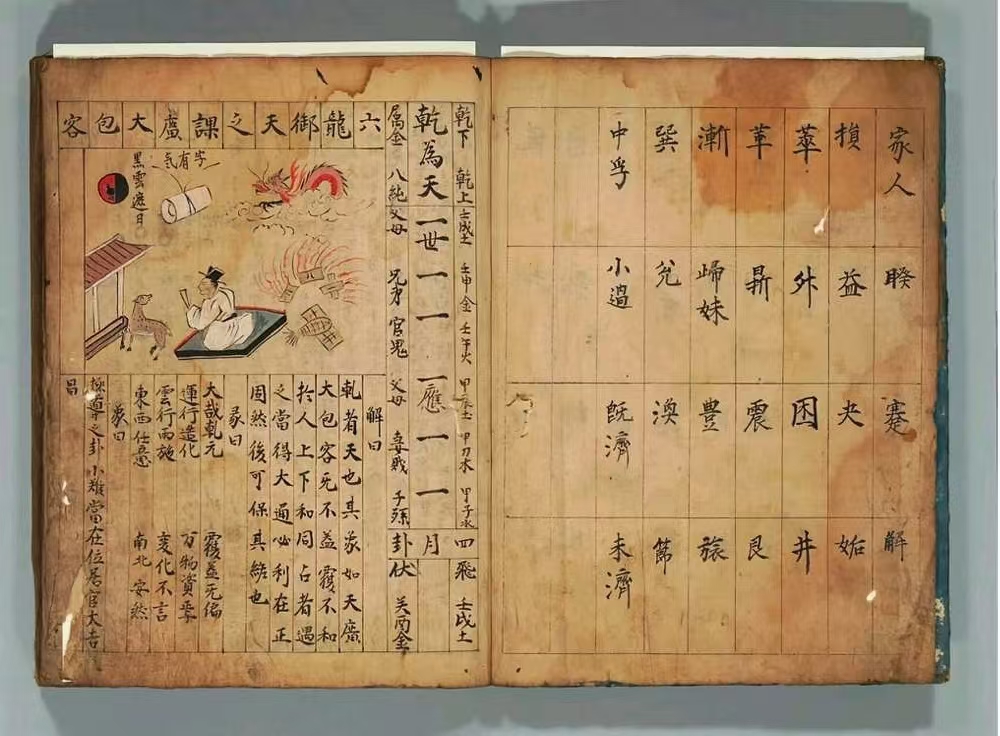 家人 睽 蹇 解
損 益 夬 姤
萃 升 困 井
革 鼎 震 艮
漸 歸妹 豐 旅
巽 兌 渙 節
中孚 小過 既濟 未濟
乾下 乾上 壬戌土 壬申金 壬午火 甲辰土 甲寅木 甲子水
乾為天 一世 一 一 一應 一 一
属金 八純 父母 兄弟 官鬼 父母 妻財 子孫
四月卦
飛 壬戌土
伏 癸酉金
六龍御天之課廣大包容
有字
黑雲遮月
解曰
乾者天也其象如天廣
大包容无不益覆不和
於人上下和同占者遇
之當得大通必利在正
固然後可保其終也
彖曰
大哉乾元 覆盖无偏
運行造化 万物資
雲行雨施 变化不言
東西任意 南北安然
象曰
極尊之卦小难當在位居官大吉
昌